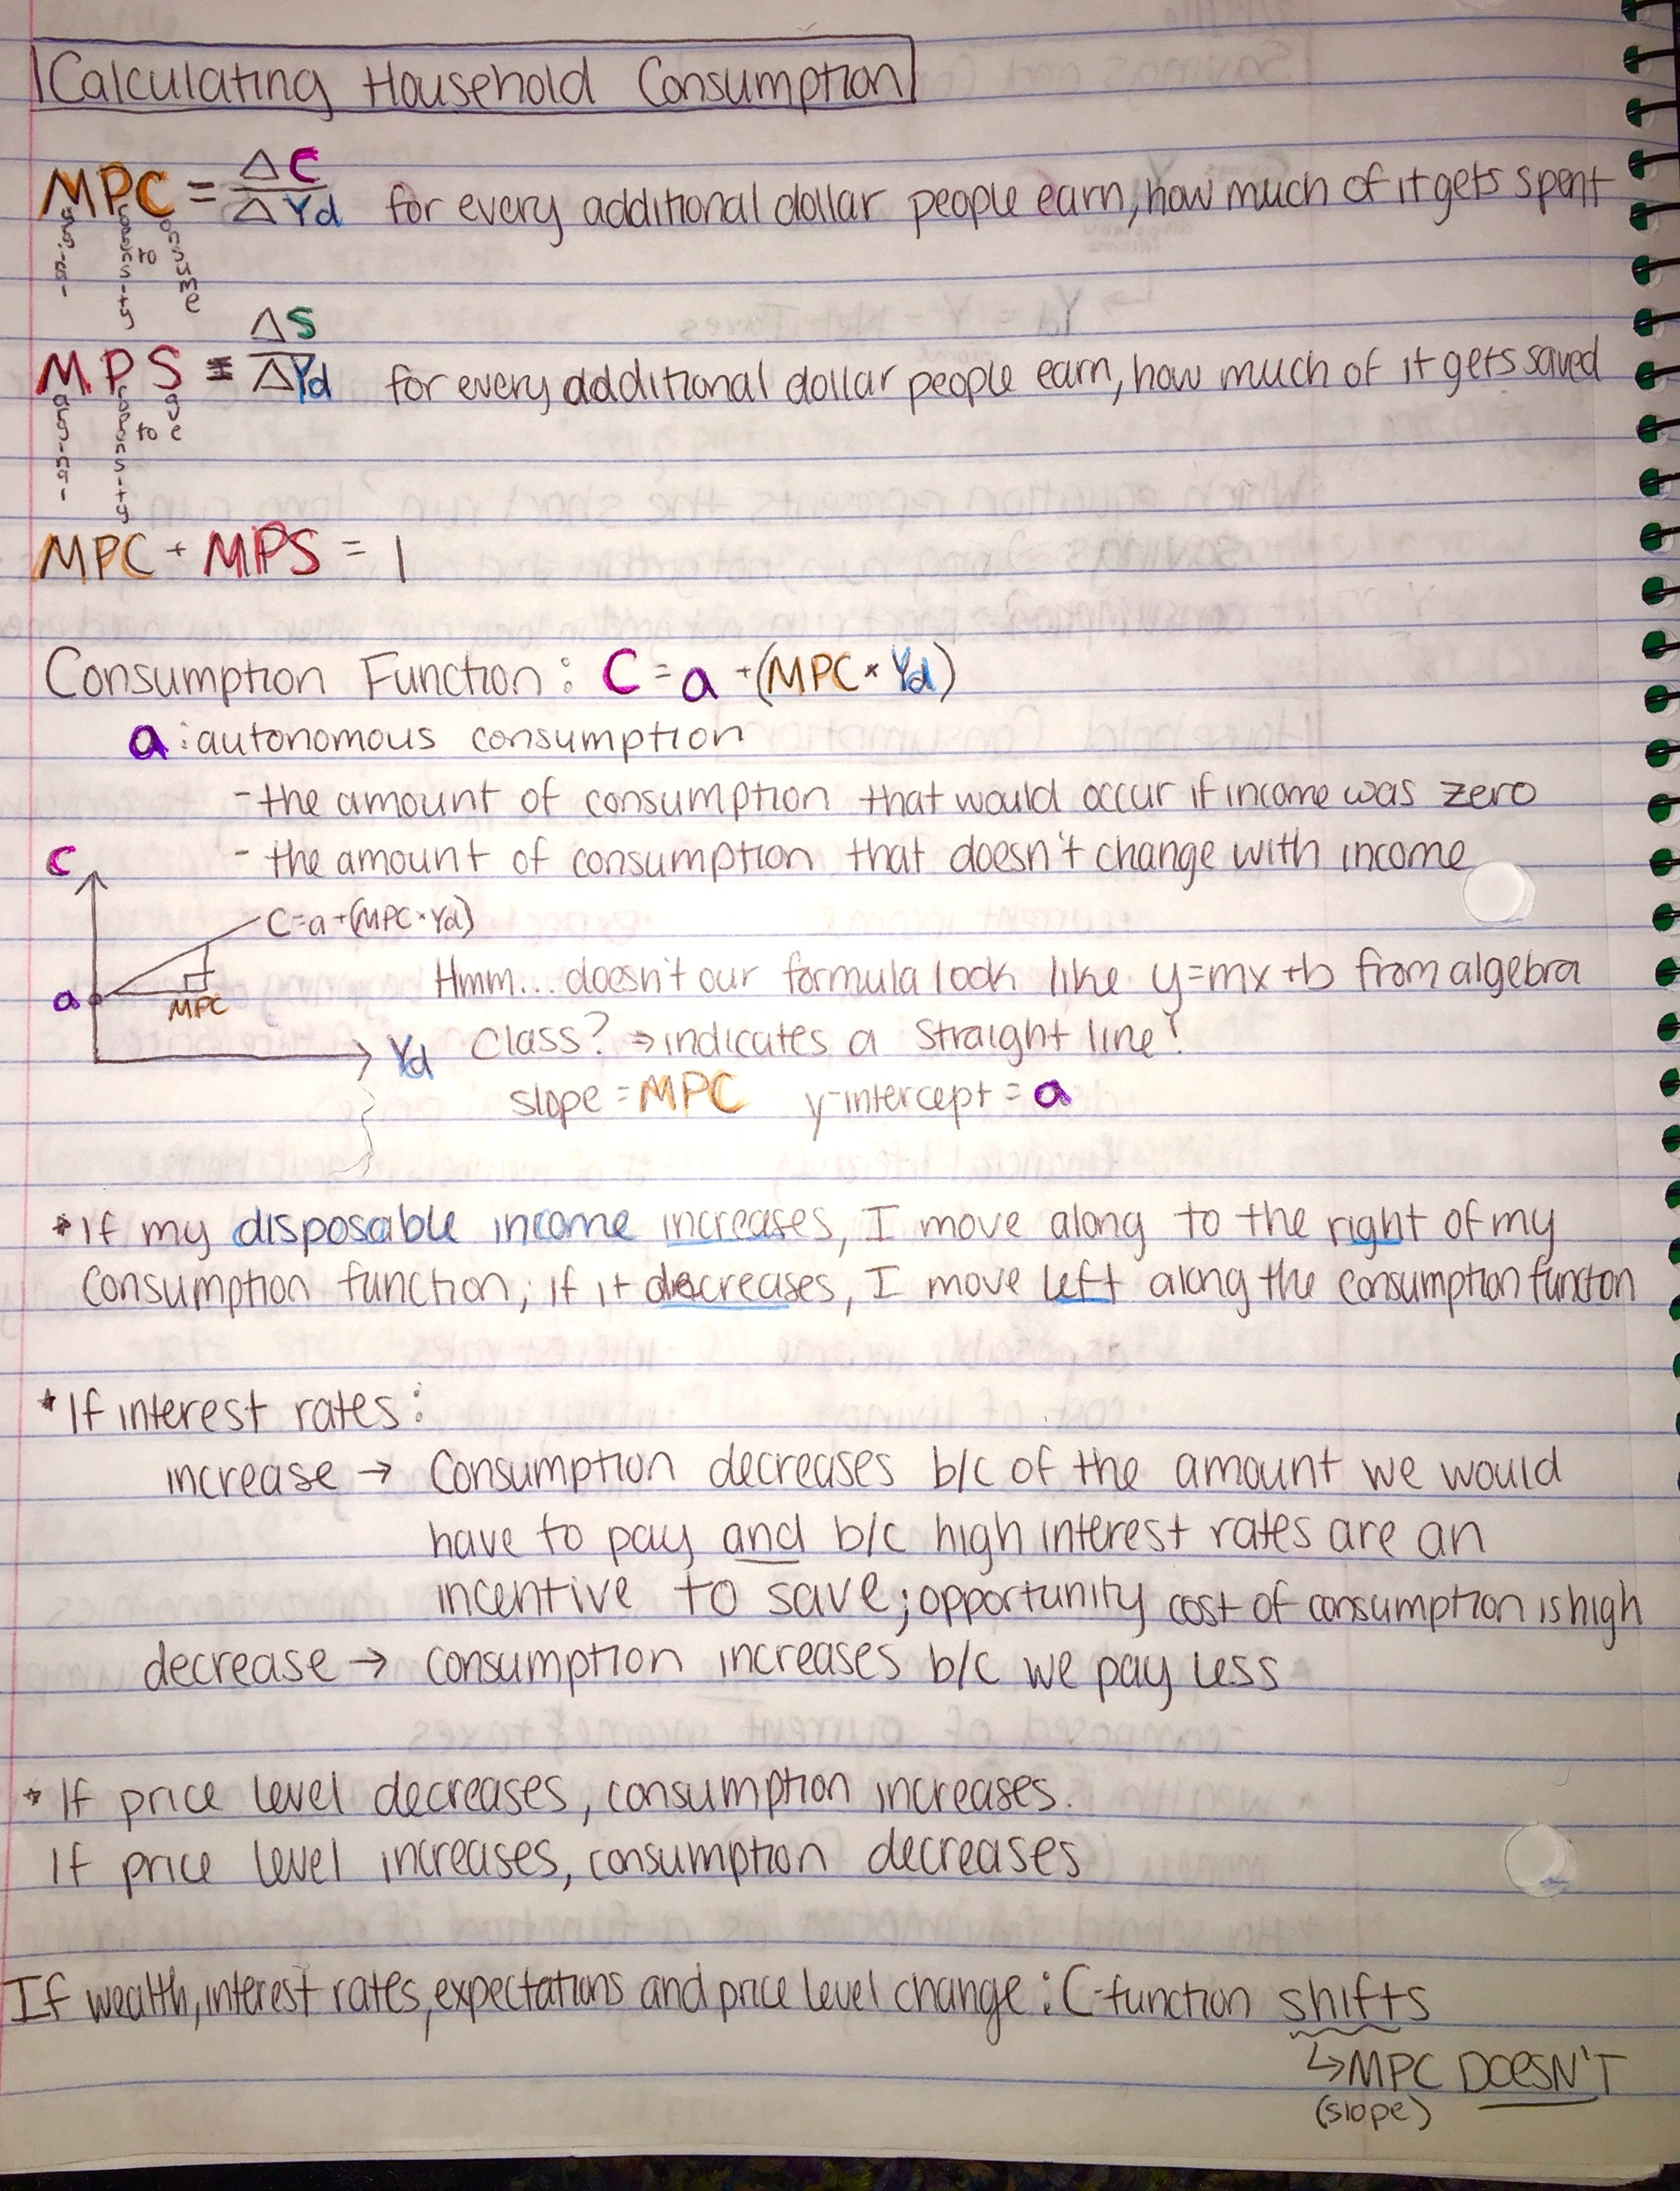 Calculating Household Consumption
MPC = ΔC / ΔYd for every additional dollar people earn, how much of it gets spent
Marginal Propensity to Consume
MPS = ΔS / ΔYd for every additional dollar people earn, how much of it gets saved
Marginal Propensity to Save
MPC + MPS = 1
Consumption Function: C = a + (MPC × Yd)
a: autonomous consumption
- the amount of consumption that would occur if income was zero
- the amount of consumption that doesn't change with income
C
C=a+(MPC×Yd)
a
MPC
Yd
Hmm... doesn't our formula look like y=mx+b from algebra
class? ⇒ indicates a straight line!
slope = MPC y-intercept = a
* If my disposable income increases, I move along to the right of my
consumption function; if it decreases, I move left along the consumption function
* If interest rates:
increase → Consumption decreases b/c of the amount we would
have to pay and b/c high interest rates are an
incentive to save; opportunity cost of consumption is high
decrease → consumption increases b/c we pay less
* If price level decreases, consumption increases.
If price level increases, consumption decreases
If wealth, interest rates, expectations and price level change: C-function shifts
↳ MPC DOESN'T
(slope)